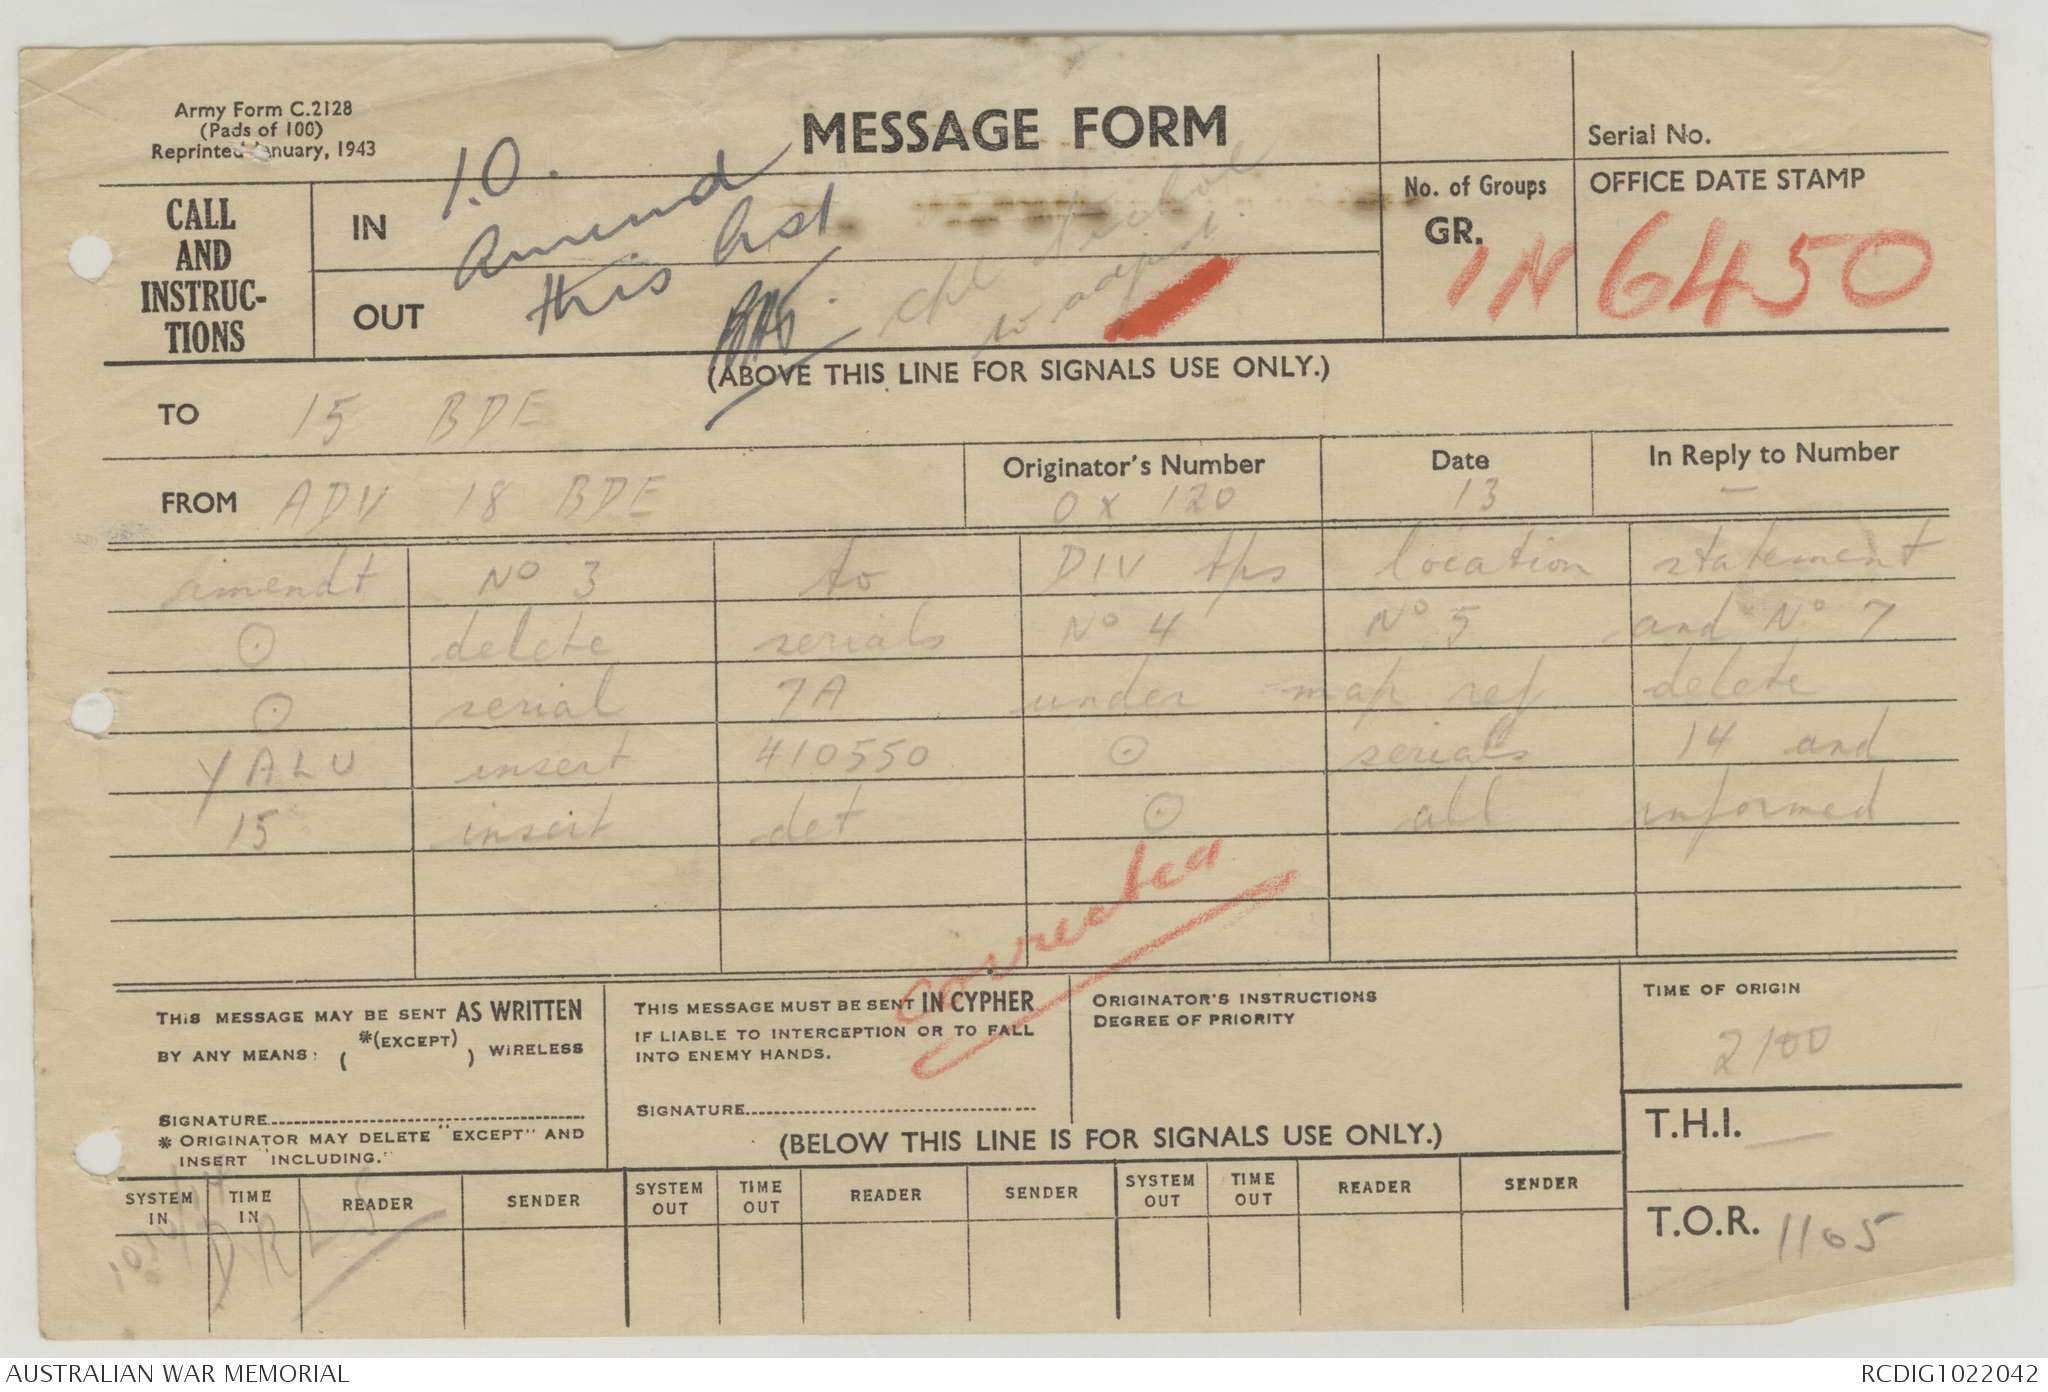 Army Form C.2128
(Pads of 100)
Reprinted January, 1943
MESSAGE FORM
Serial No.
CALL AND INSTRUC-TIONS
IN
OUT
I.O.
Amend
this list
Cpl
to adjust
No. of Groups
GR.
OFFICE DATE STAMP
IN 6450
(ABOVE THIS LINE FOR SIGNALS USE ONLY.)
TO 15 BDE
FROM ADV 18 BDE
Originator's Number
O X 120
Date
13
In Reply to Number
—
amendt No 3 to DIV tps location statement
⊙ delete serials No 4 No 5 and No 7
⊙ serial 7A under map ref delete
YALU insert 410550 ⊙ serials 14 and
15 insert det ⊙ all informed
corrected
THIS MESSAGE MAY BE SENT AS WRITTEN
BY ANY MEANS: ( *(EXCEPT) ) WIRELESS
SIGNATURE
* ORIGINATOR MAY DELETE "EXCEPT" AND
INSERT "INCLUDING."
THIS MESSAGE MUST BE SENT IN CYPHER
IF LIABLE TO INTERCEPTION OR TO FALL
INTO ENEMY HANDS.
SIGNATURE
ORIGINATOR'S INSTRUCTIONS
DEGREE OF PRIORITY
TIME OF ORIGIN
2100
T.H.I. —
T.O.R. 1105
(BELOW THIS LINE IS FOR SIGNALS USE ONLY.)
SYSTEM IN TIME IN READER SENDER SYSTEM OUT TIME OUT READER SENDER SYSTEM OUT TIME OUT READER SENDER
AUSTRALIAN WAR MEMORIAL
RCDIG1022042